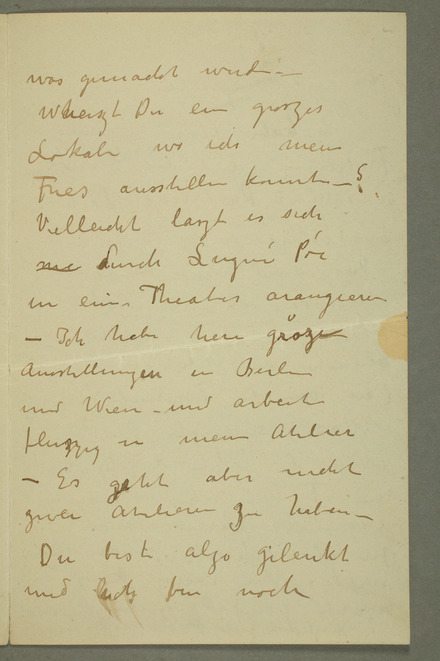 was gemacht wird –
Weiszt Du ein groszes
Lokale wo ich mein
Fries ausstellen konnte – ?
Vielleicht laszt es sich
durch Lugné Pöe
in eine Theater arangieren
– Ich habe here grösze
Ausstellungen in Berlin
und Wien – und arbeite
fleiszig in mein Atelier
– Es geht aber nicht
zwei Atelieren zu haben –
Du bist also gelenkt
und ich bin noch